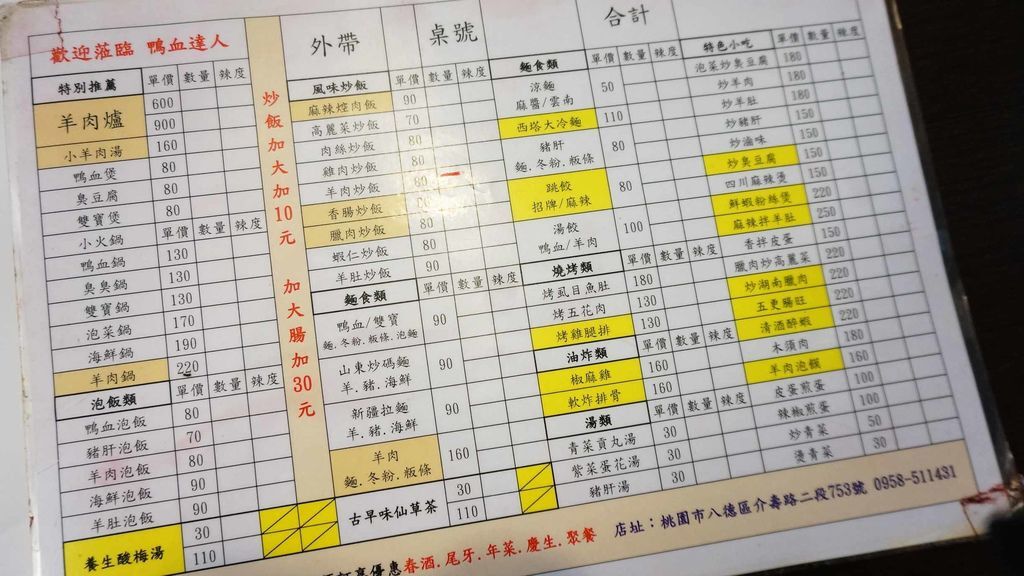 歡迎蒞臨 鴨血達人
特別推薦 單價 數量 辣度
羊肉爐 600
900
小羊肉湯 160
鴨血煲 80
臭豆腐 80
雙寶煲 80
小火鍋 單價 數量 辣度
鴨血鍋 130
臭臭鍋 130
雙寶鍋 130
泡菜鍋 170
海鮮鍋 190
羊肉鍋 220
泡飯類 單價 數量 辣度
鴨血泡飯 80
豬肝泡飯 70
羊肉泡飯 80
海鮮泡飯 90
羊肚泡飯 90
養生酸梅湯 30
110
炒飯加大加10元 加大腸加30元
外帶 桌號 合計
風味炒飯 單價 數量 辣度
麻辣焢肉飯 90
高麗菜炒飯 70
肉絲炒飯 80
雞肉炒飯 80
羊肉炒飯 80
香腸炒飯 80
臘肉炒飯 80
蝦仁炒飯 80
羊肚炒飯 90
麵食類 單價 數量 辣度
鴨血/雙寶 90
麵.冬粉.粄條.泡麵
山東炒碼麵 90
羊.豬.海鮮
新疆拉麵 90
羊.豬.海鮮
羊肉 160
麵.冬粉.粄條
古早味仙草茶 30
110
麵食類 單價 數量 辣度
涼麵 50
麻醬/雲南
西塔大冷麵 110
豬肝 80
麵.冬粉.粄條
跳餃 80
招牌/麻辣
湯餃 100
鴨血/羊肉
燒烤類 單價 數量 辣度
烤虱目魚肚 180
烤五花肉 130
烤雞腿排 130
油炸類 單價 數量 辣度
椒麻雞 160
軟炸排骨 160
湯類 單價 數量 辣度
青菜貢丸湯 30
紫菜蛋花湯 30
豬肝湯 30
特色小吃 單價 數量 辣度
泡菜炒臭豆腐 180
炒羊肉 180
炒羊肚 180
炒豬肝 180
炒滷味 150
炒臭豆腐 150
四川麻辣燙 150
鮮蝦粉絲煲 220
麻辣拌羊肚 250
香拌皮蛋 150
臘肉炒高麗菜 220
炒湖南臘肉 220
五更腸旺 220
清酒醉蝦 220
木須肉 180
羊肉泡饃 160
皮蛋煎蛋 100
辣椒煎蛋 100
炒青菜 50
燙青菜 30
優惠春酒.尾牙.年菜.慶生.聚餐 店址：桃園市八德區介壽路二段753號 0958-511431